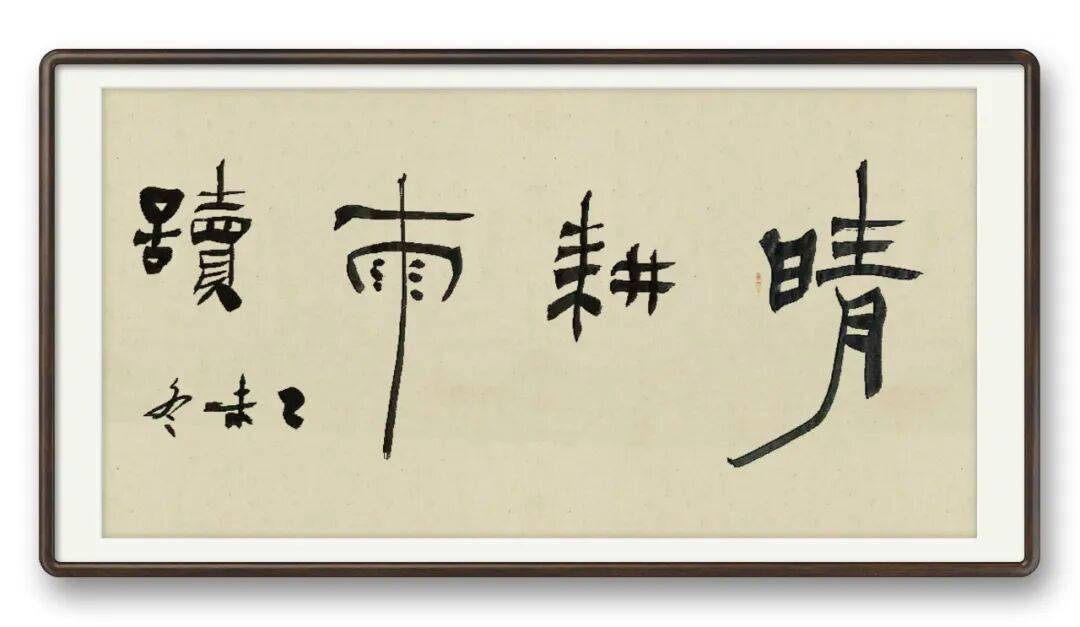 晴耕雨讀
乙未冬